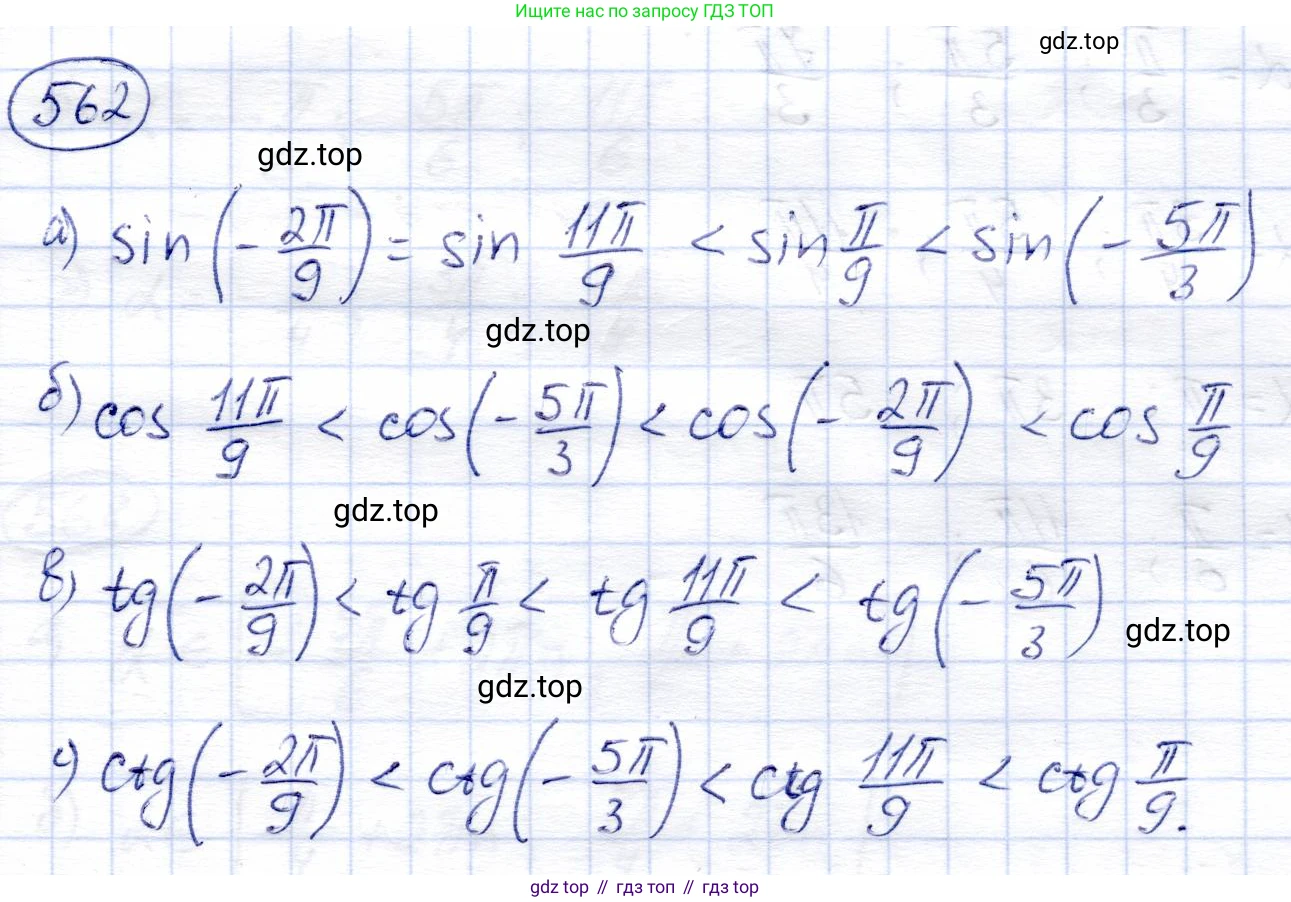 Ищите нас по запросу ГДЗ ТОП
gdz.top
562
gdz.top
а) sin(-2π/9) = sin 11π/9 < sin π/9 < sin(-5π/3)
gdz.top
б) cos 11π/9 < cos(-5π/3) < cos(-2π/9) < cos π/9
gdz.top
в) tg(-2π/9) < tg π/9 < tg 11π/9 < tg(-5π/3)
gdz.top
gdz.top
г) ctg(-2π/9) < ctg(-5π/3) < ctg 11π/9 < ctg π/9.
gdz top // гдз топ // гдз top